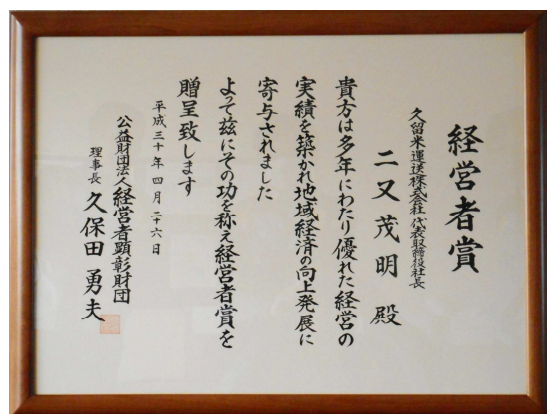 経営者賞
久留米運送株式会社 代表取締役社長
二又茂明 殿
貴方は多年にわたり優れた経営の
実績を築かれ地域経済の向上発展に
寄与されました
よって茲にその功を称え経営者賞を
贈呈致します
平成三十年四月二十六日
公益財団法人経営者顕彰財団
理事長 久保田勇夫